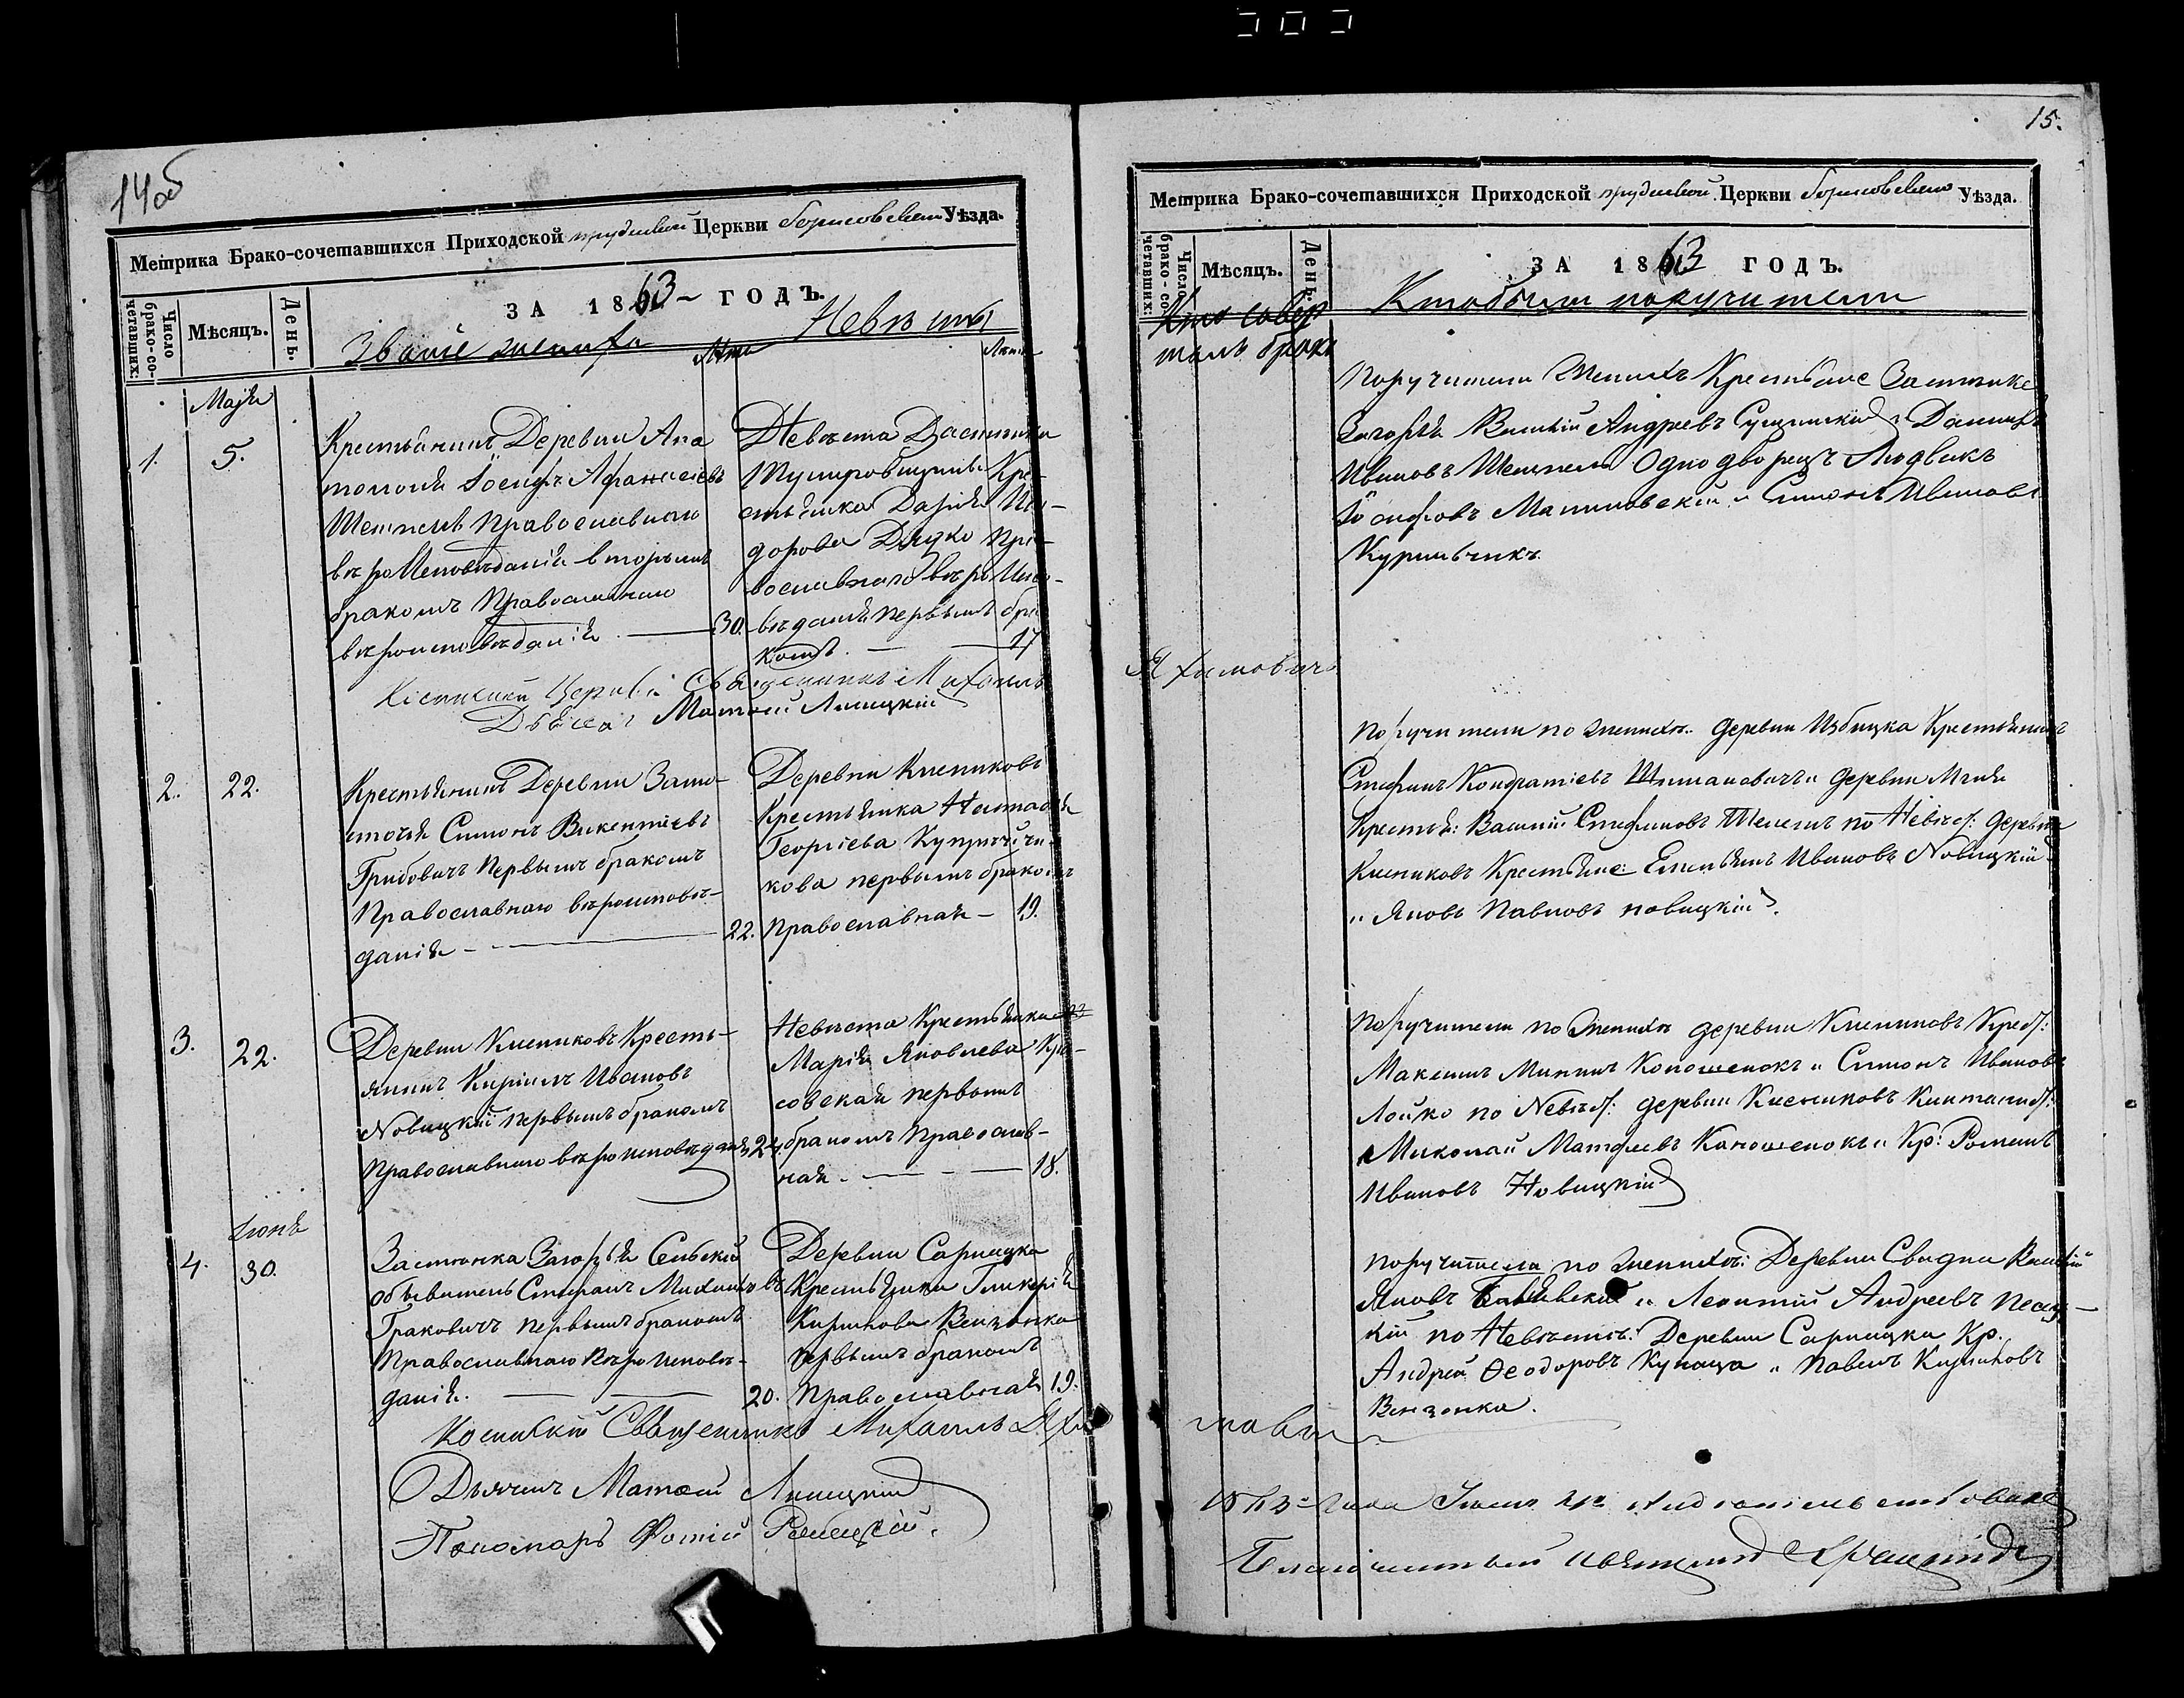 14об
Метрика Брако-сочетавшихся Приходской прудской Церкви борисовскаго Уѣзда.
Число брако-со-четавших:
Мѣсяцъ.
День.
ЗА 1863 ГОДЪ.
Званіе жениха
Лѣта
Невѣсты
Лѣта
Маія
1. 5.
Крестьянинъ Деревни Апа
томолья Іосифъ Афанасіевъ
Шемпель Православнаго
вѣроИсповѣданія вторымъ
бракомъ Православнаго
вѣроисповѣданія 30.
Невѣста Застѣнка
Кре-
стьянка Дарія Иси-
дорова Дядко Пра-
вославнаго вѣроИспо-
вѣданія первымъ бра
комъ. 17
Церкви Священникъ Михаилъ
Матѳей Лисицкій
2. 22.
Крестьянинъ Деревни Замо-
сточья Симонъ Викентіевъ
Грибовичъ Первымъ бракомъ
Православнаго вѣроисповѣ-
данія 22.
Деревни Кисниковъ
Крестьянка Настасія
Георгіева
кова первымъ бракомъ
Православная 19.
3. 22.
Деревни Кисниковъ Кресть-
янинъ Кирилъ Ивановъ
Новицкій первымъ бракомъ
Православнаго вѣроисповѣданія 24.
Невѣста Крестьянка
Марія Яковлева Кра-
совская первымъ
бракомъ Православ-
ная. 18.
Іюня
4. 30.
Застѣнка Загорья Сельскій
обыватель Стефанъ Михайловъ
Гракович первымъ бракомъ
Православнаго ВѣроИсповѣ-
данія. 20.
Деревни Сарницка
Крестьянка Гликерія
Кирилова Вензонка
первымъ бракомъ
Православная 19.
Священникъ Михаилъ Яхи
Дьячекъ Матѳей Лисицкій
Пономарь Фотій
15.
Метрика Брако-сочетавшихся Приходской прудской Церкви борисовскаго Уѣзда.
Число брако-со-четавших:
Мѣсяцъ.
День.
ЗА 1863 ГОДЪ.
Кто совер
шалъ бракъ
Кто были поручители
Поручители Жениха Крестьяне Застѣнка
Загорья Василій Андреевъ Сущинскій и Даніилъ
Ивановъ Шемпель Однодворецъ Людвикъ
Іосифовъ Малиновскій и Симонъ Ивановъ
Курильчикъ
Яхимовичъ
Поручители по женихѣ: деревни Избицка Крестьянинъ
Стефанъ Кондратіевъ Шимановичъ и деревни Мгля
Крестья: Василій Стефановъ Шелегъ по Невѣст: Деревни
Кисниковъ Крестьяне Емельянъ Ивановъ Новицкій
и Яковъ Павловъ новицкій.
Поручители по Женихѣ деревни Кисниковъ Крест:
Максимъ Мининъ Коношенокъ и Симонъ Ивановъ
Лойко по Невѣст: деревни Кисниковъ
Николай Матфеевъ Каношенокъ и Кр: Романъ
Ивановъ Новицкій
поручители по женихѣ: Деревни Свидна Василій
Яковъ и Леонтій Андреевъ
кій по Невѣстѣ: Деревни Сарницка Кр.
Андрей Ѳеодоровъ Купаца и Павелъ Кириловъ
Вензонка.
мович
1863 года
Благочинный